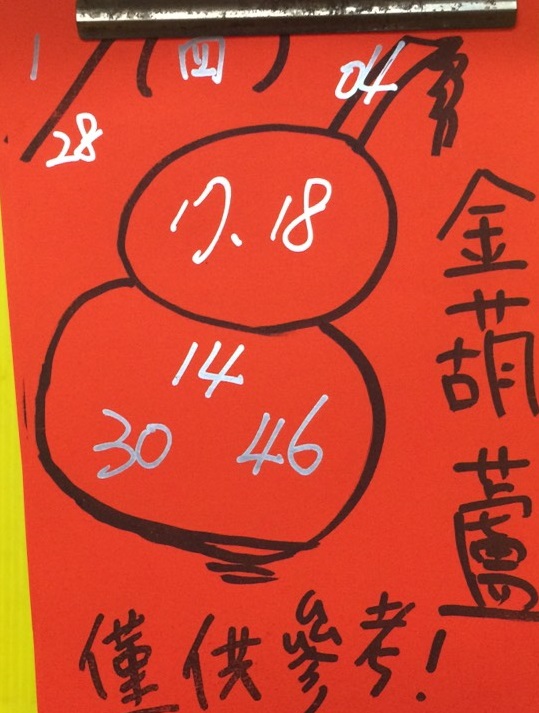 1/28 (四)
04
17、18
14
30 46
金葫蘆
僅供參考!